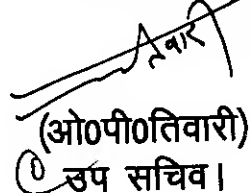 तिवारी
(ओ0पी0तिवारी)
उप सचिव।